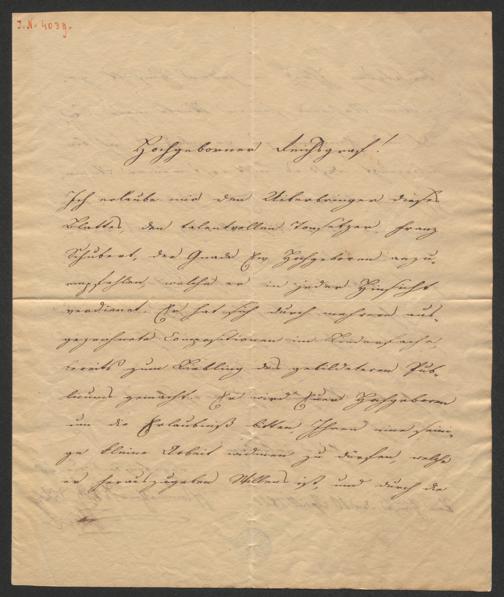 I. N. 4039.
Hochgeborner Reichsgraf!
Ich erlaube mir den Ueberbringer dieses
Blattes, den talentvollen Tonsetzer Franz
Schubert, der Gnade Eu Hochgeboren anzu-
empfehlen, welche er in jeder Hinsicht
verdienet. Er hat sich durch mehrere aus-
gezeichnete Compositionen im Liederfache
bereits zum Liebling des gebildeteren Pub-
likums gemacht. Er wird Euer Hochgeboren
um die Erlaubniß bitten Ihnen eine seini-
ge kleine Arbeit widmen zu dürfen, welche
er herauszugeben Willens ist, und durch die